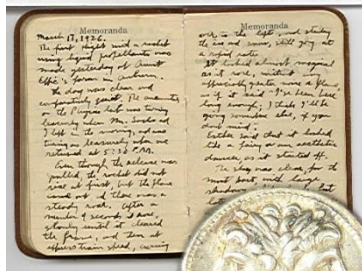 Memoranda
March 17, 1926.
The first flight with a rocket
using liquid propellants was
made yesterday at Aunt
Effie's farm in Auburn.
The day was clear and
comparatively quiet. The anemometer
on the Physics lab was turning
leisurely when Mr. Sachs and
I left in the morning, and was
turning as leisurely when we
returned at 5:30 P.M.
Even though the release was
pulled, the rocket did not
rise at first, but the flame
came out, and there was a
steady roar. After a
number of seconds it rose,
slowly until it cleared
the frame, and then at
express train speed, curving
Memoranda
over to the left, and striking
the ice and snow, still going at
a rapid rate.
It looked almost magical
as it rose, without any
appreciably greater noise or flame,
as if it said "I've been here
long enough; I think I'll be
going somewhere else, if you
don't mind."
Esther said that it looked
like a fairy or an aesthetic
dancer, as it started off.
The sky was clear, for the
most part, with large
shadowy